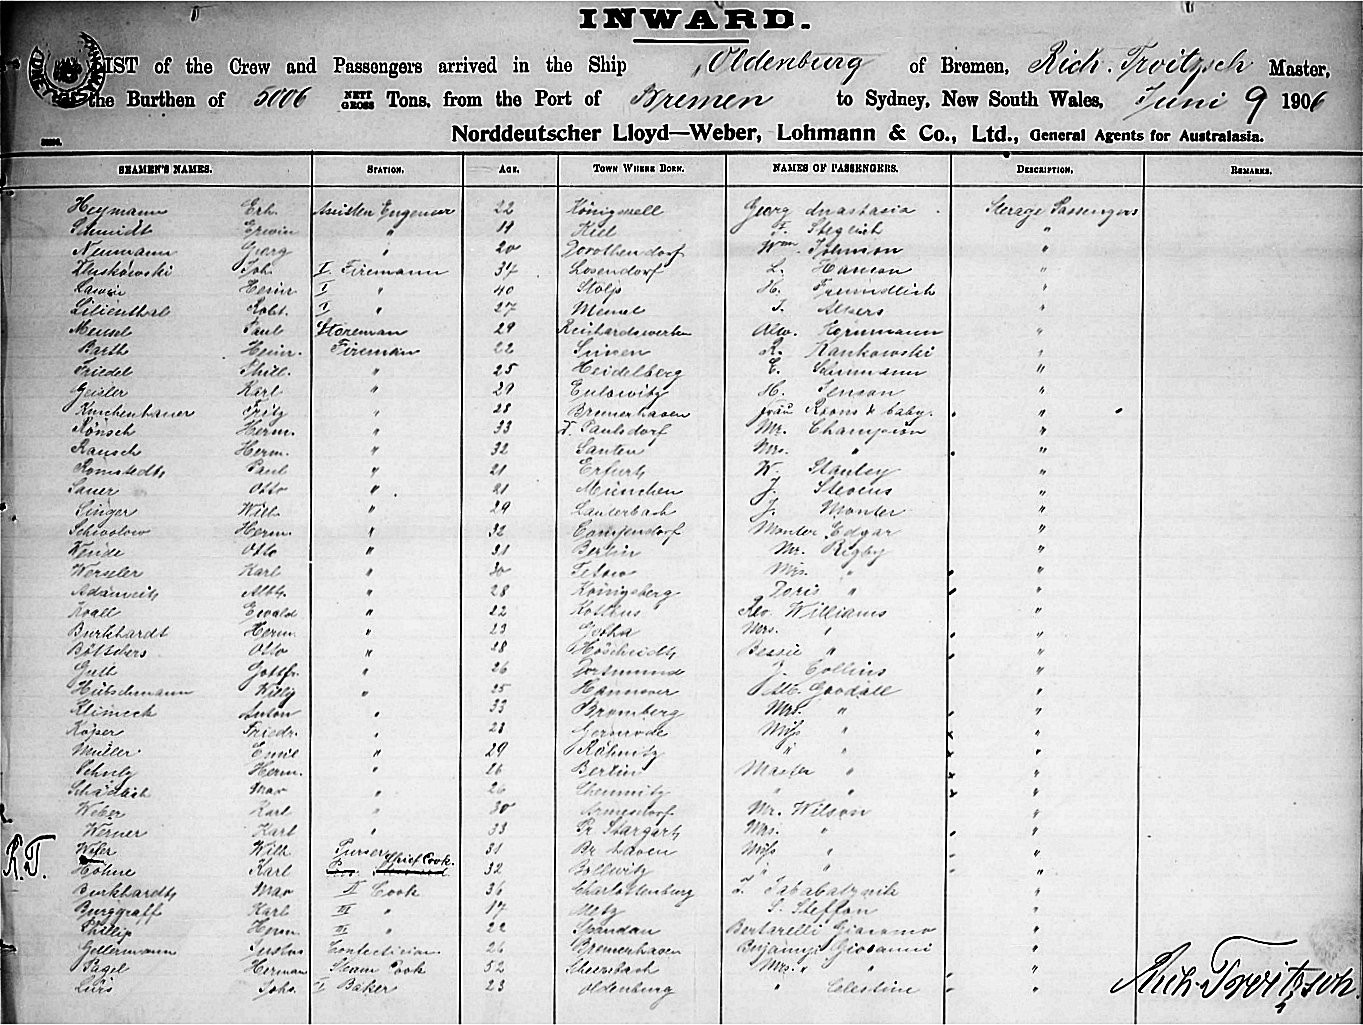 INWARD.
LIST of the Crew and Passengers arrived in the Ship Oldenburg of Bremen, Rich. Troitzsch Master,
the Burthen of 5006 NETT GROSS Tons, from the Port of Bremen to Sydney, New South Wales, Juni 9 1906
Norddeutscher Lloyd—Weber, Lohmann & Co., Ltd., General Agents for Australasia.
SEAMEN'S NAMES. STATION. AGE. TOWN WHERE BORN. NAMES OF PASSENGERS. DESCRIPTION. REMARKS.
Heymann Erh. 22 Georg Anastasia Sterage Passengers
Schmidt Erwin " 19 Kiel F. Steglich "
Neumann Georg " 20 Dorothendorf Wm Johnson "
Joh. I. Firemann 34 Losendorf L. Hanson "
Heinr I " 40 Stolp H. Freundlich "
Lilienthal Robt. I " 27 Memel J. "
Paul Storeman 29 "
Barth Heinr. Fireman 22 R. Kankowski "
Friedel Phill. " 25 Heidelberg E. Schumann "
Geisler Karl " 29 Eulowitz H. Jenson "
Kirchenbauer Fritz " 28 Bremerhaven Frau & baby. "
Rönsch Herm. " 33 Paulsdorf Mr. Champion "
Rausch Herm. " 32 Santen Mrs. " "
Romstedt Paul " 21 Erfurt W. Stanley "
Sauer Otto " 21 München J. Stevens "
Singer Will. " 29 Lauterbach J. Monter "
Herm. " 32 Monter Edgar "
Weide Otto " 31 Berlin Mr. Rigby "
Karl " 30 Teltow Mrs. " "
Albt. " 28 Königsberg Doris " "
Ewald " 22 Kottbus Rev. Williams "
Burkhardt Herm. " 23 Gotha Mrs. " "
Böttchers Otto " 28 Höscheidt Bessie " "
Guth Gottfr. " 26 Dortmund J. Collins "
Hübschmann Willy " 25 Hannover Goodall "
Klimeck Anton " 33 Bromberg Mrs. " "
Friedr. " 28 Gernrode Miss " "
Müller Emil " 29 " " "
Schulz Herm. " 26 Berlin Master " "
Schädlich Max " 26 Chemnitz " " "
Weber Karl " 30 Mr. Wilson "
Werner Karl " 33 Pr. Stargart Mrs. " "
R.T. Will Purser 31 Br haven Miss " "
Höhne Karl Chief Cook. 32 " " "
Burkhardt Max II Cook 36 Charlottenburg "
Burggraff Karl III " 17 Metz S. Steffan "
Phillip Herm. III " 22 Spandau Bertarelli Giacomo "
Gellermann Justus 26 Bremerhaven Giovanni "
Pagel Herman Steam Cook 52 Mrs. " " "
Lürs Johs. I Baker 23 Oldenburg " Celestine "
Rich. Troitzsch.